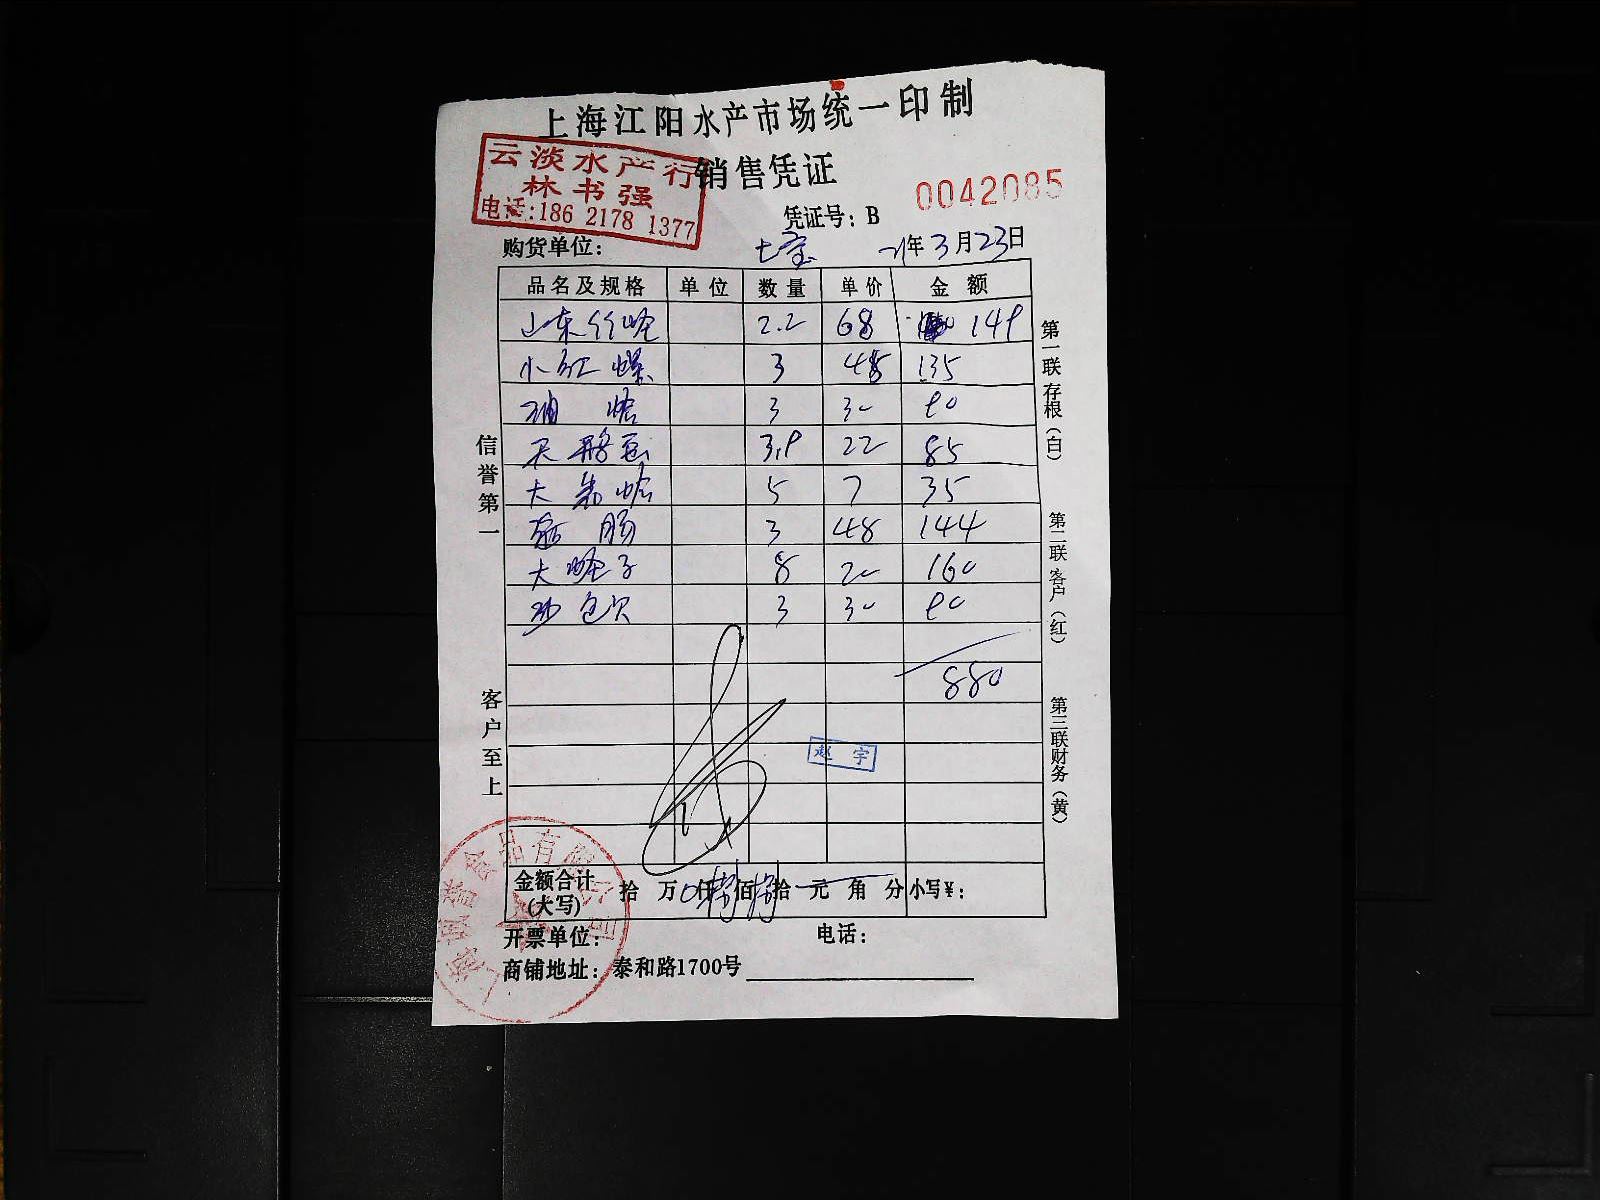 上海江阳水产市场统一印制
云淡水产行
林书强
电话:186 2178 1377
销售凭证
0042085
凭证号：B
购货单位： 七宝 21年3月23日
品名及规格 单位 数量 单价 金额
山东竹蛏 2.2 68 149
小红螺 3 45 135
3 30 90
3.9 22 85
大 蛤 5 7 35
肠 3 48 144
大蛏子 8 20 160
3 30 90
880
赵宇
金额合计(大写) 拾 万 仟 佰 拾 元 角 分 小写¥：
开票单位： 电话：
商铺地址：泰和路1700号
信誉第一
客户至上
第一联存根（白）
第二联客户（红）
第三联财务（黄）
食品有限公司